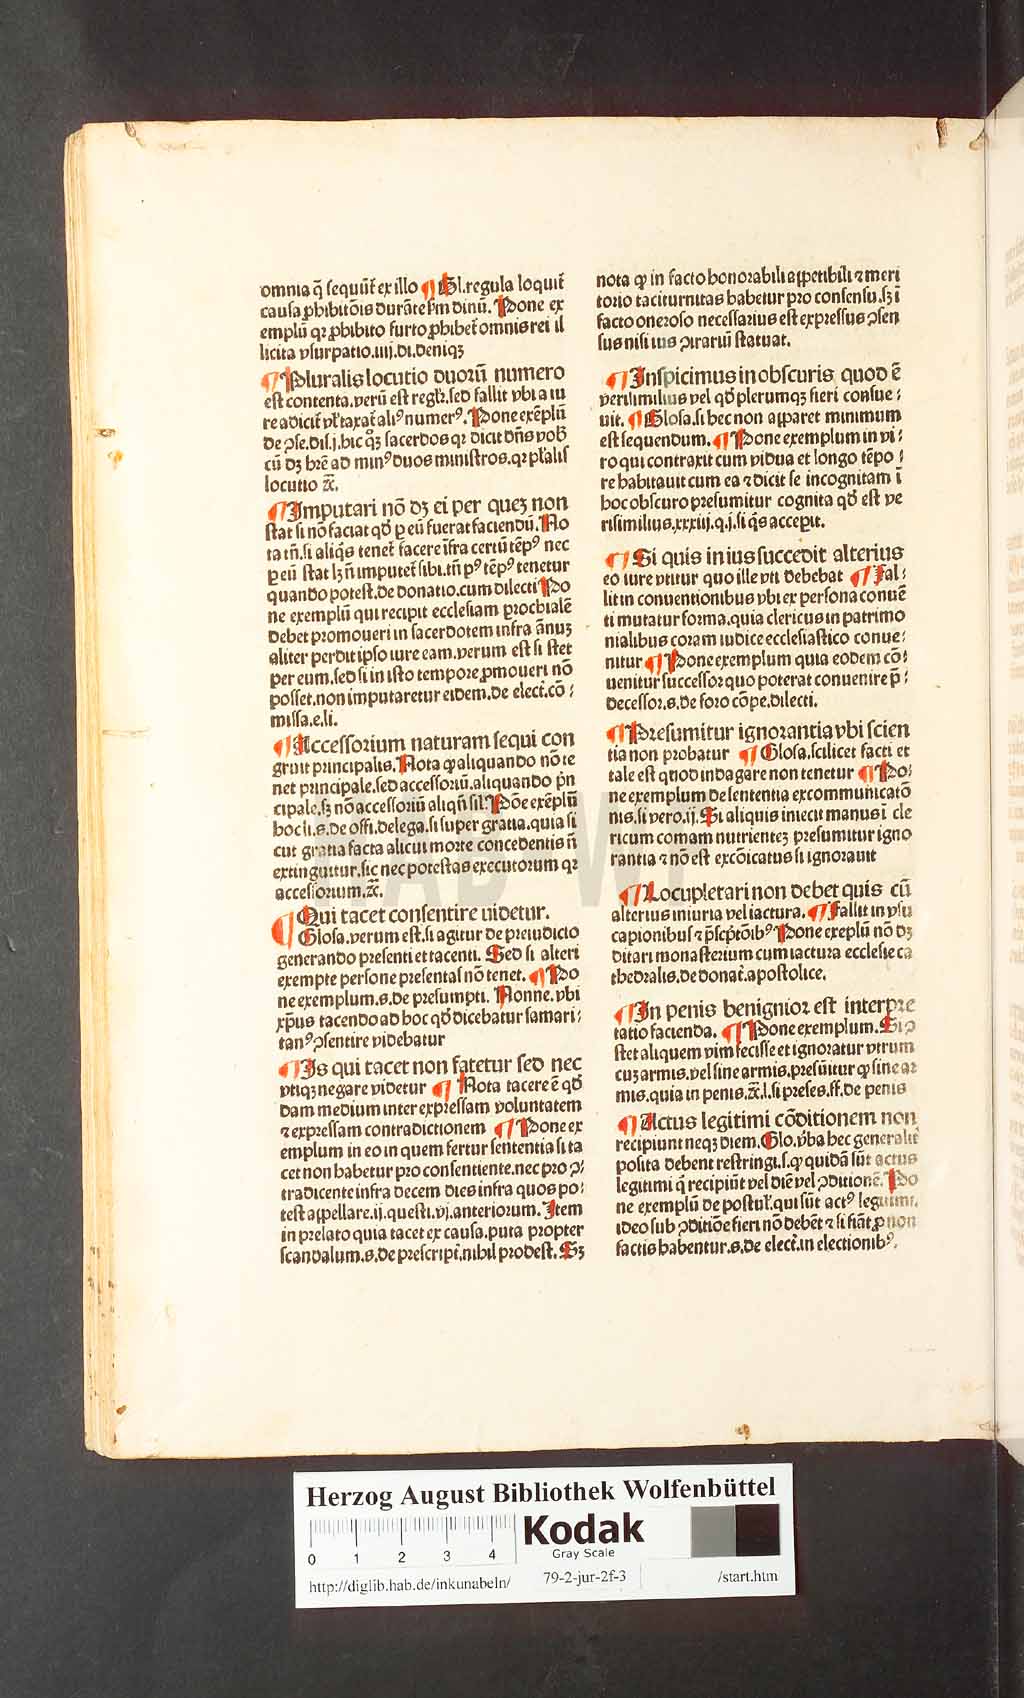 omnia q̄ sequūt̄ ex illo ¶ Gl. regula loquit̄
causa ꝓhibitōis durāte sm̄ dinū. Pone ex
emplū qꝛ ꝓhibito furto ꝓhibet̄ omnis rei il
licita vsurpatio. iiij. di. deniqꝫ
¶ Pluralis locutio duorū numero
est contenta. verū est regl̄r. sed fallit vbi a iu
re adicit̄ vl̓ taxat̄ aliꝰ numerꝰ. Pone exēplū
de ꝯse. dis. j. hic qꝫ sacerdos qꝛ dicit dn̄s vob̄
cū dꝫ hr̄e ad minꝰ duos ministros. qꝛ pl̓alis
locutio ⁊c̄.
¶ Imputari nō dꝫ ei per quez non
stat si nō faciat qd̓ ꝑ eū fuerat faciendū. No
ta tn̄. si aliq̄s tenet̄ facere īfra certū tēpꝰ nec
ꝑ eū stat lꝫ n̄ imputet̄ sibi. tn̄ pꝰ tēpꝰ tenetur
quando potest. de donatio. cum dilecti Po
ne exemplū qui recipit ecclesiam ꝑrochialē
debet promoueri in sacerdotem infra ānuꝫ
aliter perdit ipso iure eam. verum est si stet
per eum. sed si in isto tempore ꝓmoueri nō
posset. non imputaretur eidem. de elect̄. cō ⸗
missa. e. li.
¶ Accessorium naturam sequi con
gruit principalis. Nota ꝙ aliquando nō te
net principale. sed accessoriū. aliquando pn̄
cipale. sꝫ nō accessoriū aliqn̄ sil̓. Pōe exēplū
hoc li. s. de offi. delega. si super gratia. quia si
cut gratia facta alicui morte concedentis n̄
extinguitur. sic nec potestas executorum qꝛ
accessorium. ⁊c̄.
¶ Qui tacet consentire uidetur.
Glosa. verum est. si agitur de preiudicio
generando presenti et tacenti. Sed si alteri
exempte persone presentas nō tenet. ¶ Po
ne exemplum. s. de presumpti. Nonne. vbi
xp̄us tacendo ad hoc qd̓ dicebatur samari⸗
tanꝰ ꝯsentire videbatur
¶ Is qui tacet non fatetur sed nec
vtiqꝫ negare videtur ¶ Nota tacere ē qd̓
dam medium inter expressam voluntatem
⁊ expressam contradictionem ¶ Pone ex
emplum in eo in quem fertur sententia si ta
cet non habetur pro consentiente. nec pro ꝯ⸗
tradicente infra decem dies infra quos po⸗
test appellare. ij. questi. vj. anteriorum. Item
in prelato quia tacet ex causa. puta propter
scandalum. s. de prescript̄. nihil prodest. Sꝫ
nota ꝙ in facto honorabili appetibili ⁊ meri
torio taciturnitas habetur pro consensu. sꝫ ī
facto oneroso necessarius est expressus ꝯsen
sus nisi ius ꝯtrariū statuat.
¶ Inspicimus in obscuris quod ē
verisimilius vel qd̓ plerumqꝫ fieri consue⸗
uit. ¶ Glosa. si hec non apparet minimum
est sequendum. ¶ Pone exemplum in vi⸗
ro qui contraxit cum vidua et longo tēpo⸗
re habitauit cum ea ⁊ dicit se incognitam ī
hoc obscuro presumitur cognita qd̓ est ve
risimilius. xxxiij. q. j. si q̄s acceperit.
¶ Si quis in ius succedit alterius
eo iure vtitur quo ille vti debebat ¶ Fal⸗
lit in conuentionibus vbi ex persona conuē
ti mutatur forma. quia clericus in patrimo
nialibus coram iudice ecclesiastico conue⸗
nitur ¶ Pone exemplum quia eodem cō⸗
uenitur successor quo poterat conuenire p̄⸗
decessor. s. de foro cōpe. dilecti.
¶ Presumitur ignorantia vbi scien
tia non probatur ¶ Glosa. scilicet facti et
tale est quod indagare non tenetur ¶ Po⸗
ne exemplum de sententia excommunicatō
nis. si vero. ij. Si aliquis iniecit manus ī cle
ricum comam nutrientez presumitur igno
rantia ⁊ nō est excōicatus si ignorauit
¶ Locupletari non debet quis cū
alterius iniuria vel iactura. ¶ Fallit in vsu
capionibus ⁊ p̄scp̄tōibꝰ Pone exeplū nō dꝫ
ditari monasterium cum iactura ecclesie ca
thedralis. de donat̄. apostolice.
¶ In penis benignior est interpre
tatio facienda. ¶ Pone exemplum. Si ꝯ
stet aliquem vim fecisse et ignoratur vtrum
cuz armis. vel sine armis. presūitur ꝙ sine ar
mis. quia in penis. ⁊c̄. l. si preses. ff. de penis
¶ Actus legitimi cōditionem non
recipiunt neqꝫ diem. Glo. v̓ba hec generalit̄
posita debent restringi. s. ꝙ quidā sūt actus
legitimi q̄ recipiūt vel diē vel ꝯditionē. Po
ne exemplū de postul̓. qui sūt actꝰ legitimi.
ideo sub ꝯditiōe fieri nō debēt ⁊ si fiāt ꝓ non
factis habentur. s. de elect̄. in electionibꝰ.
HAB WF
Herzog August Bibliothek Wolfenbüttel
0 1 2 3 4
Kodak
Gray Scale
http://diglib.hab.de/inkunabeln/ 79-2-jur-2f-3 /start.htm